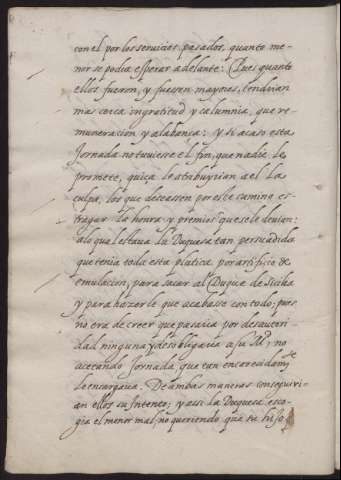 con el por los seruicios pasados, quanto me-
nor se podia esperar adelante: Pues quanto
ellos fueron, y fuesen mayores, tendrian
mas cerca ingratitud y calumnia, que re-
muneracion y alabança: y si acaso esta
Jornada no tuuiese el fin, que nadie le
promete, quiça le atribuyrian a el la
culpa, los que deseassen por este camino es-
tragar la honra y premios que se le deuian:
a lo qual estaua la Duquesa tan persuadida
que tenia toda esta platica por artificio de
emulacion, para sacar al Duque de Sicilia
y para hazerle que acabase con todo; pues
no era de creer que pasaua por desautori-
dad ninguna y desobligaua a su Md. no
acetando Jornada, que tan encarecidamte.
le encargaua. De ambas maneras conseguiri-
an ellos su Intento; y assi la Duquesa esco-
gia el menor mal, no queriendo que su hijo